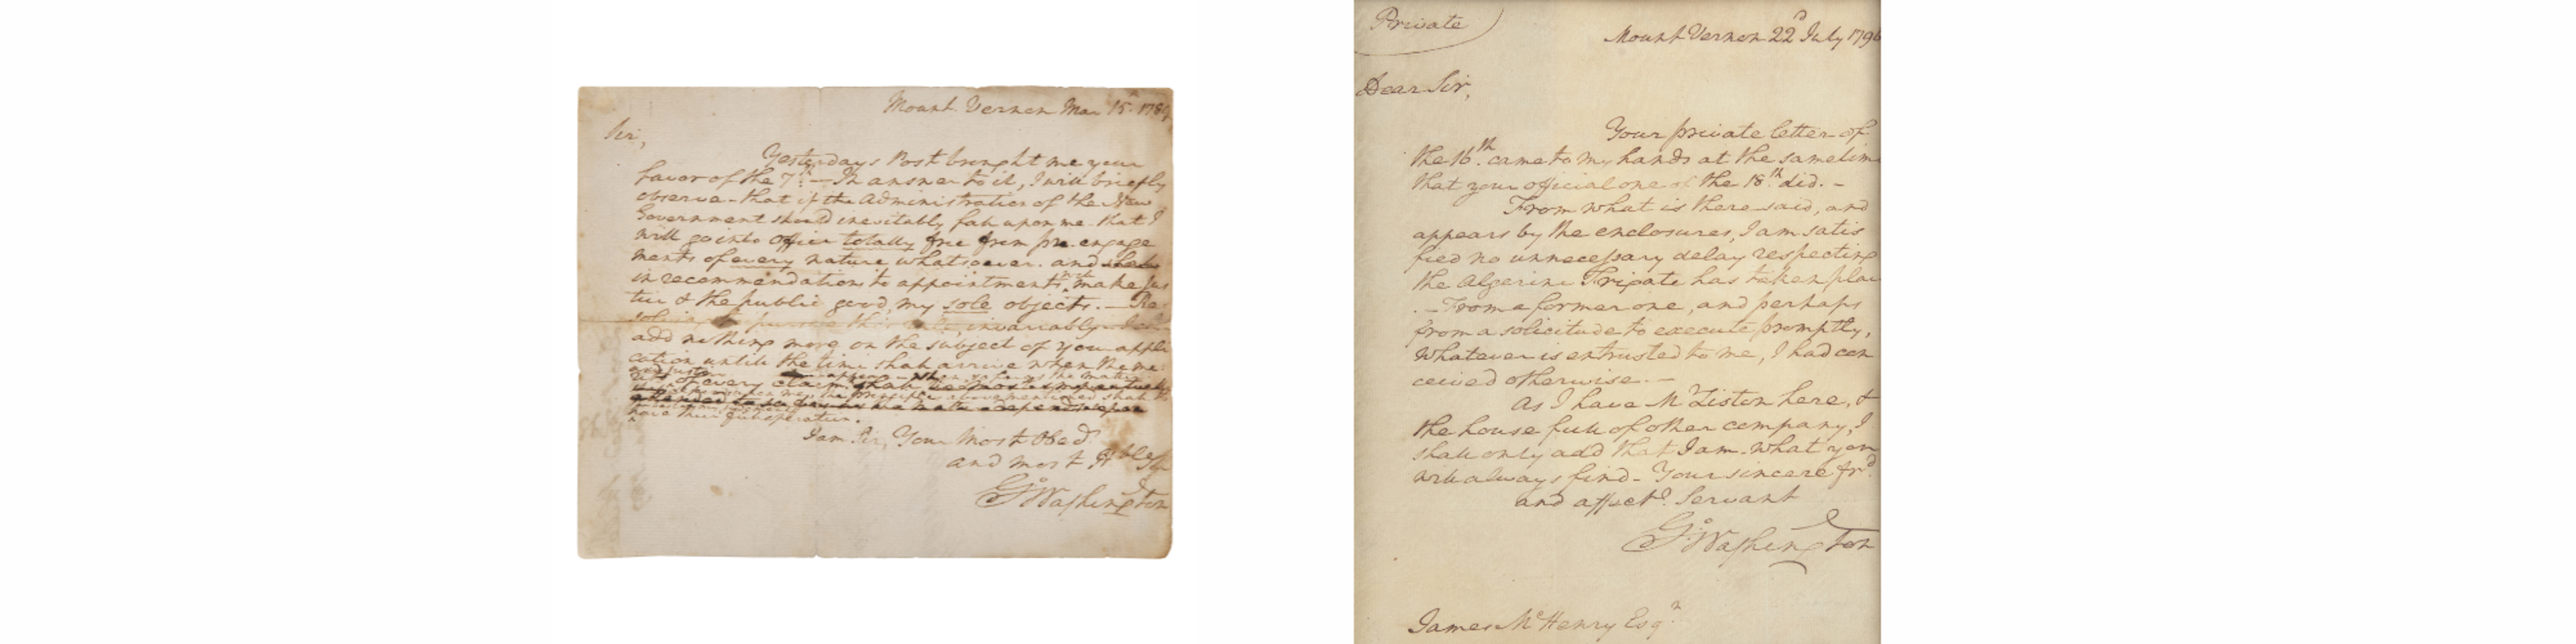 Mount Vernon Mar 15th 1789
Sir,
Yesterdays Post brought me your
favor of the 7th.—In answer to it, I will briefly
observe-that if the Administration of the New
Government should inevitably fall upon me-that I
will go into office totally free from pre-engage
ments of every nature whatsoever. and
in recommendations to appointments make jus
tice & the public good, my sole objects.—Re
solving to pursue this rule, invariably
add nothing more on the subject of your appli
cation until the time shall arrive when the me
of every claim shall
attended to so far as the matter depends upon
have their full operation.
I am Sir, Your Most Obedt
and most Hble Ser
Go: Washington
Private
Mount Vernon 22d July 1796
Dear Sir,
Your private letter of
the 16th. came to my hands at the same time
that your official one of the 18th. did.-
From what is there said, and
appears by the enclosures, I am satis
fied no unnecessary delay respecting
the Algerine Frigate has taken place
.-From a former one, and perhaps
from a solicitude to execute promptly,
whatever is entrusted to me, I had con
ceived otherwise.-
As I have Mr Liston here, &
the house full of other company, I
shall only add that I am-what you
will always find-Your sincere frd.
and affecte. Servant
Go: Washington
James McHenry Esqr.